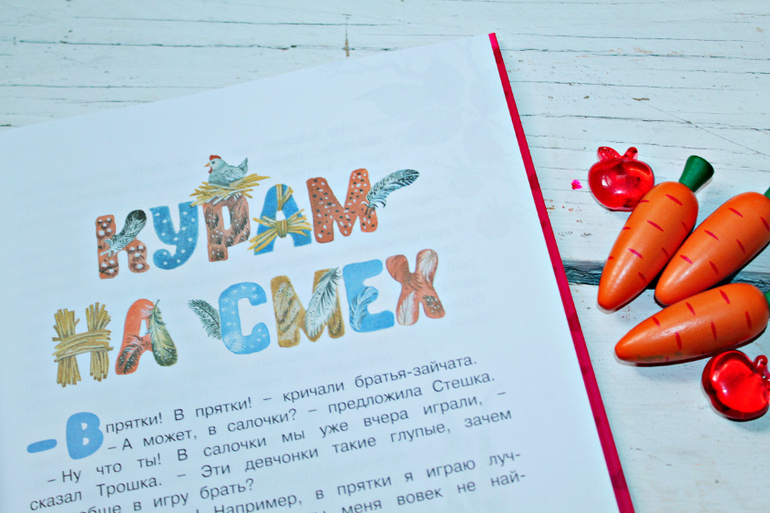 КУРАМ
НА СМЕХ
– В прятки! В прятки! – кричали братья-зайчата.
– А может, в салочки? – предложила Стешка.
– Ну что ты! В салочки мы уже вчера играли, –
сказал Трошка. – Эти девчонки такие глупые, зачем
в игру брать?
! Например, в прятки я играю луч-
меня вовек не най-